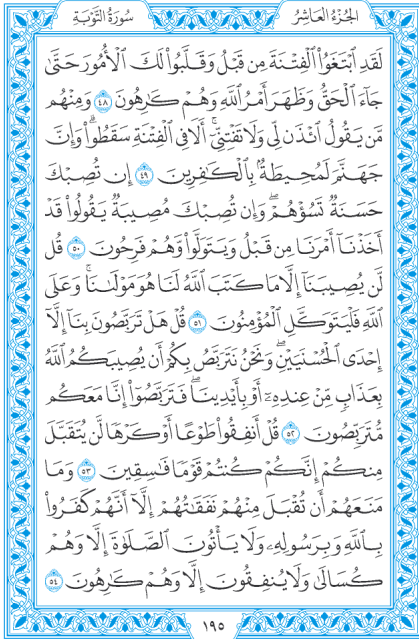 الجُزْءُ العَاشِرُ
سُورَةُ التَّوْبَةِ
لَقَدِ ٱبْتَغَوُا۟ ٱلْفِتْنَةَ مِن قَبْلُ وَقَلَّبُوا۟ لَكَ ٱلْأُمُورَ حَتَّىٰ
جَآءَ ٱلْحَقُّ وَظَهَرَ أَمْرُ ٱللَّهِ وَهُمْ كَٰرِهُونَ ٤٨ وَمِنْهُم
مَّن يَقُولُ ٱئْذَن لِّى وَلَا تَفْتِنِّىٓ ۚ أَلَا فِى ٱلْفِتْنَةِ سَقَطُوا۟ ۗ وَإِنَّ
جَهَنَّمَ لَمُحِيطَةٌۢ بِٱلْكَٰفِرِينَ ٤٩ إِن تُصِبْكَ
حَسَنَةٌ تَسُؤْهُمْ ۖ وَإِن تُصِبْكَ مُصِيبَةٌ يَقُولُوا۟ قَدْ
أَخَذْنَآ أَمْرَنَا مِن قَبْلُ وَيَتَوَلَّوا۟ وَّهُمْ فَرِحُونَ ٥٠ قُل
لَّن يُصِيبَنَآ إِلَّا مَا كَتَبَ ٱللَّهُ لَنَا هُوَ مَوْلَىٰنَا ۚ وَعَلَى
ٱللَّهِ فَلْيَتَوَكَّلِ ٱلْمُؤْمِنُونَ ٥١ قُلْ هَلْ تَرَبَّصُونَ بِنَآ إِلَّآ
إِحْدَى ٱلْحُسْنَيَيْنِ ۖ وَنَحْنُ نَتَرَبَّصُ بِكُمْ أَن يُصِيبَكُمُ ٱللَّهُ
بِعَذَابٍ مِّنْ عِندِهِۦٓ أَوْ بِأَيْدِينَا ۖ فَتَرَبَّصُوٓا۟ إِنَّا مَعَكُم
مُّتَرَبِّصُونَ ٥٢ قُلْ أَنفِقُوا۟ طَوْعًا أَوْ كَرْهًا لَّن يُتَقَبَّلَ
مِنكُمْ ۖ إِنَّكُمْ كُنتُمْ قَوْمًا فَٰسِقِينَ ٥٣ وَمَا
مَنَعَهُمْ أَن تُقْبَلَ مِنْهُمْ نَفَقَٰتُهُمْ إِلَّآ أَنَّهُمْ كَفَرُوا۟
بِٱللَّهِ وَبِرَسُولِهِۦ وَلَا يَأْتُونَ ٱلصَّلَوٰةَ إِلَّا وَهُمْ
كُسَالَىٰ وَلَا يُنفِقُونَ إِلَّا وَهُمْ كَٰرِهُونَ ٥٤
١٩٥